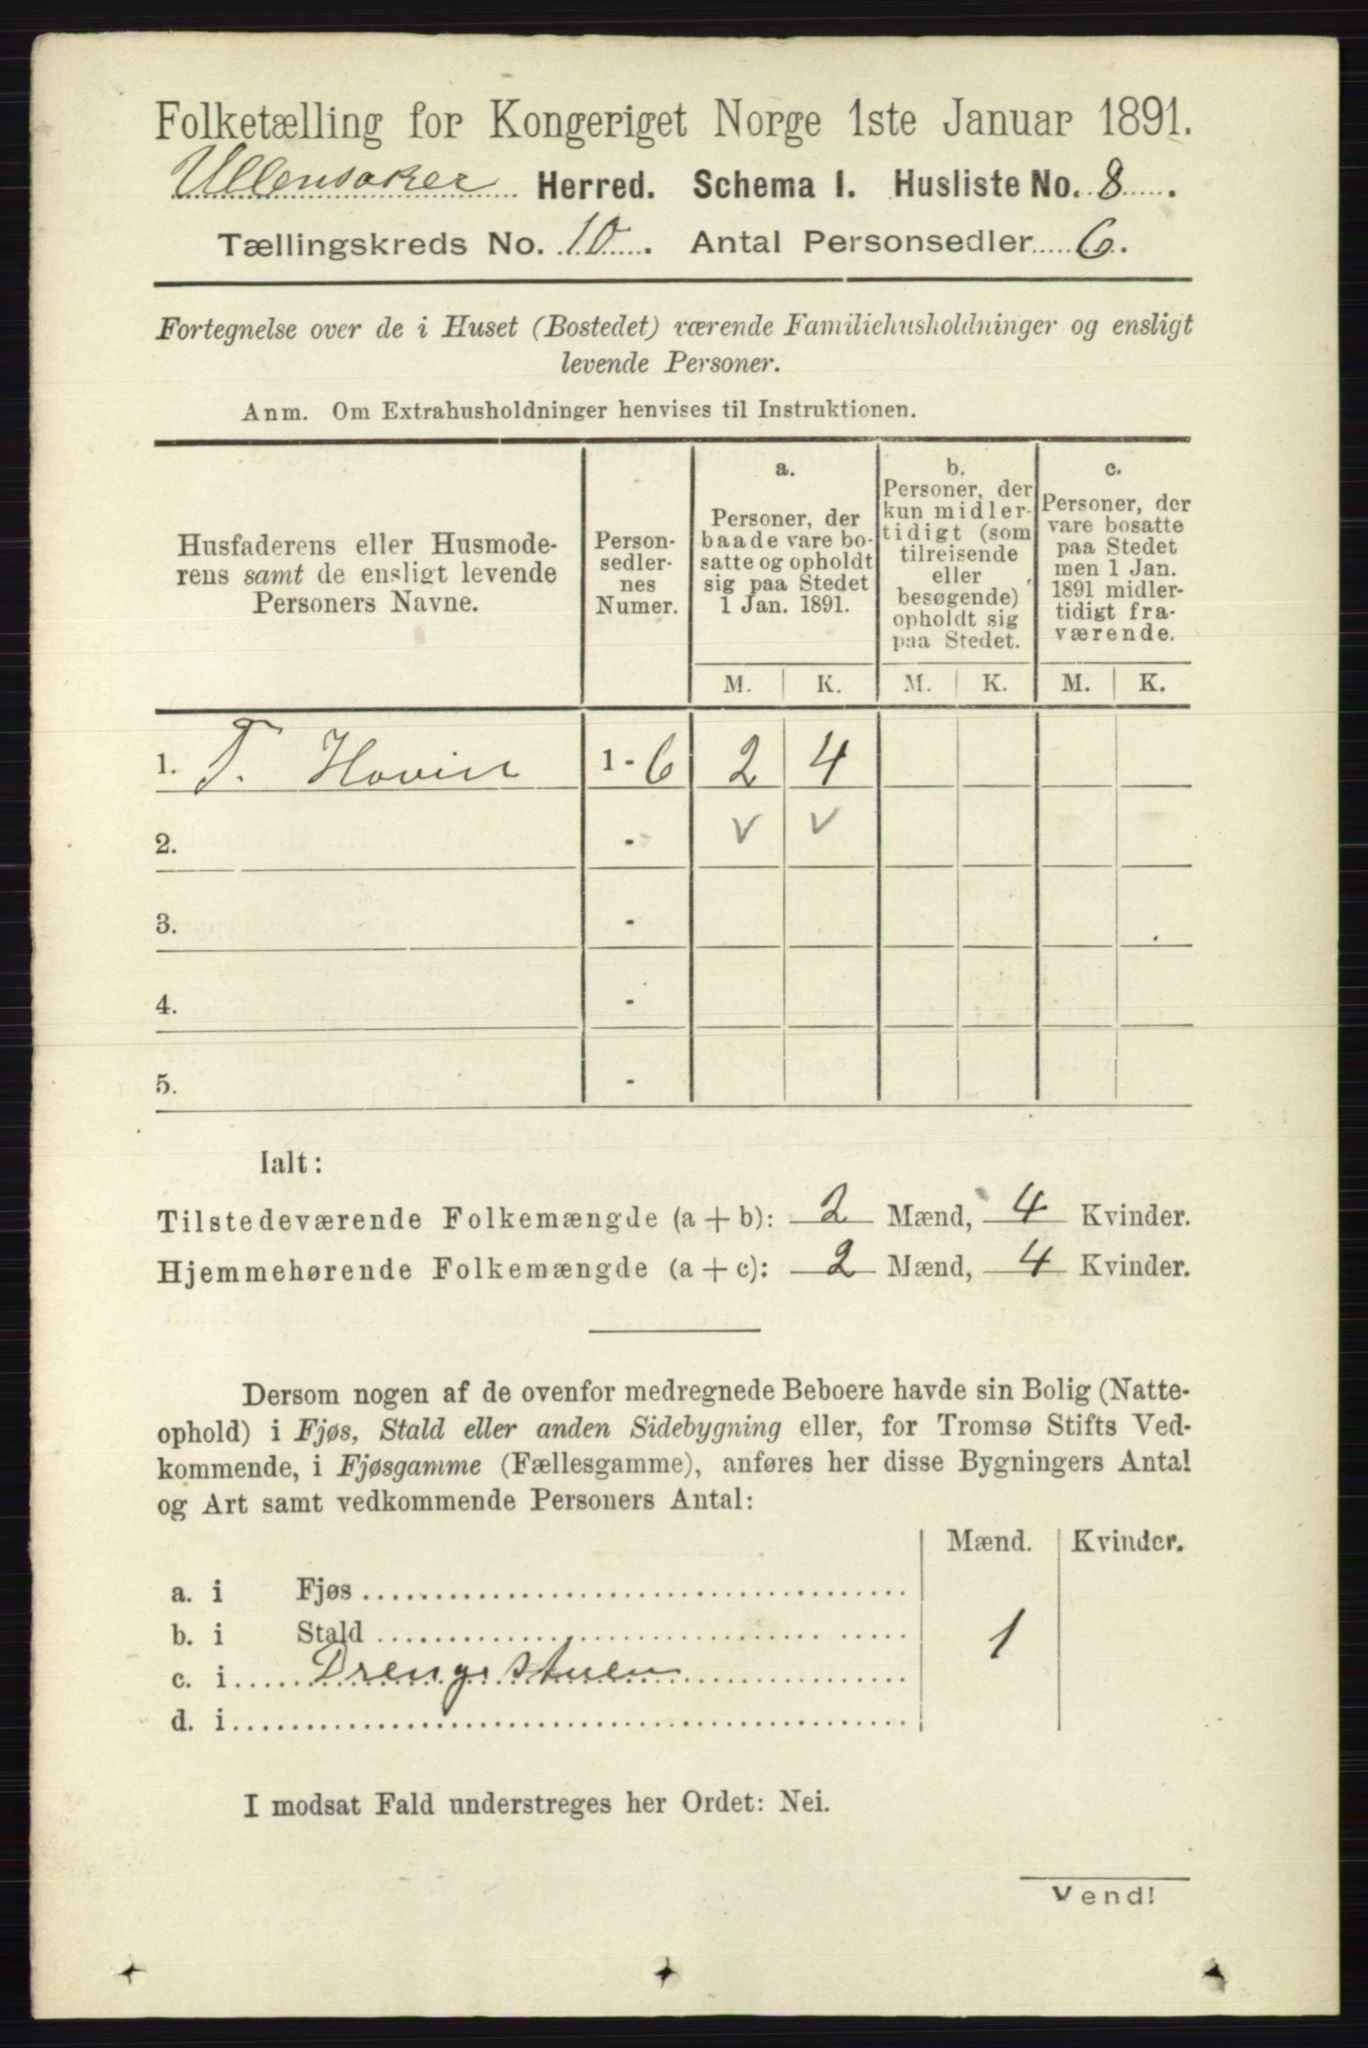 Folketælling for Kongeriget Norge 1ste Januar 1891.
Ullensaker Herred. Schema I. Husliste No. 8.
Tællingskreds No. 10. Antal Personsedler 6.
Fortegnelse over de i Huset (Bostedet) værende Familiehusholdninger og ensligt
levende Personer.
Anm. Om Extrahusholdninger henvises til Instruktionen.
Husfaderens eller Husmode-
rens samt de ensligt levende
Personers Navne.
Person-
sedler-
nes
Numer.
a.
Personer, der
baade vare bo-
satte og opholdt
sig paa Stedet
1 Jan. 1891.
b.
Personer, der
kun midler-
tidigt (som
tilreisende
eller
besøgende)
opholdt sig
paa Stedet.
c.
Personer, der
vare bosatte
paa Stedet
men 1 Jan.
1891 midler-
tidigt fra-
værende.
M. K. M. K. M. K.
1. T. Hovin 1 - 6 2 4
2. - v v
3. -
4. -
5. -
Ialt:
Tilstedeværende Folkemængde (a + b): 2 Mænd, 4 Kvinder.
Hjemmehørende Folkemængde (a + c): 2 Mænd, 4 Kvinder.
Dersom nogen af de ovenfor medregnede Beboere havde sin Bolig (Natte-
ophold) i Fjøs, Stald eller anden Sidebygning eller, for Tromsø Stifts Ved-
kommende, i Fjøsgamme (Fællesgamme), anføres her disse Bygningers Antal
og Art samt vedkommende Personers Antal:
Mænd. Kvinder.
a. i Fjøs
b. i Stald 1
c. i Drengestuen
d. i
I modsat Fald understreges her Ordet: Nei.
Vend!